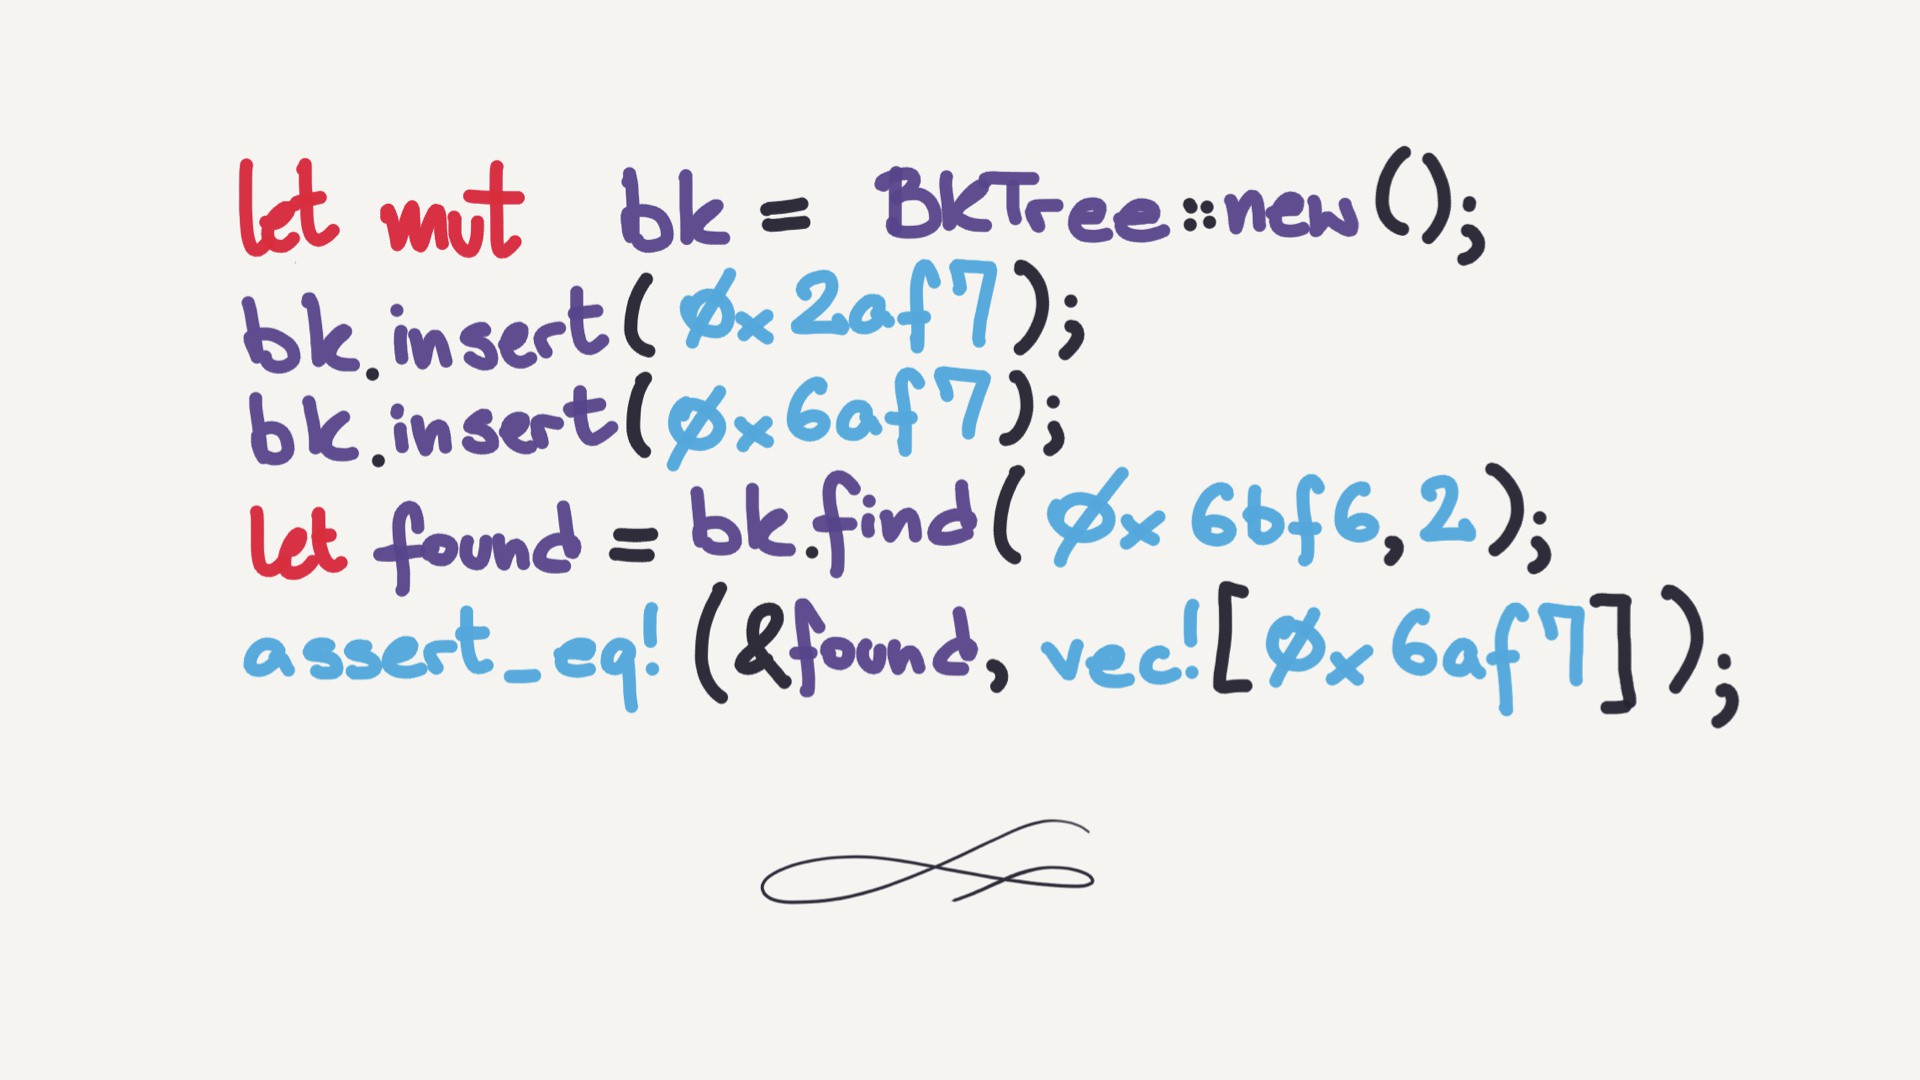 let mut bk = BKTree::new();
bk.insert(0x2af7);
bk.insert(0x6af7);
let found = bk.find(0x6bf6,2);
assert_eq!(&found, vec![0x6af7]);